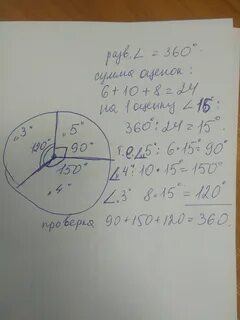 разв.∠ = 360°.
сумма оценок:
6+10+8=24
на 1 оценку ∠ 15°:
360°:24=15°.
т.е. ∠„5": 6·15°=90°
∠„4": 10·15°=150°
∠„3" 8·15°=120°
проверка 90+150+120=360.
„3"
„5"
120°
90°
150°
„4"